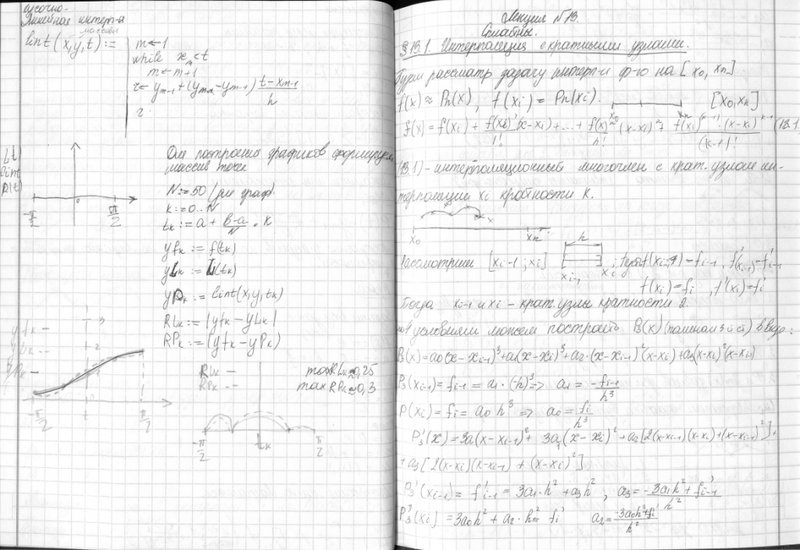 кусочно-
линейная интерп-я
lint(x,y,t):=
m←1
while xₘ<t
m←m+1
t-xₘ₋₁
h
Для построения графиков формируем
массив точек
N:=50
k:=0..N
tₖ:=a+(b-a)/N·k
yfₖ:=f(tₖ)
yLₖ:=L(tₖ)
yPₖ:=lint(x,y,tₖ)
RLₖ:=|yfₖ-yLₖ|
RPₖ:=|yfₖ-yPₖ|
yfₖ
yLₖ
yPₖ
3
2
1
-π/2
t
π/2
RLₖ
RPₖ
max RLₖ≈0,25
max RPₖ≈0,3
-π/2
tₖ
π/2
Лекция №13.
Сплайны.
§13.1. Интерполяция с кратными узлами.
Будем рассматр задачу интерп-и ф-ю на [x₀, xₙ]
f(x)≈Pₙ(x), f(xᵢ)=Pₙ(xᵢ).
x₀
xₙ
[x₀,xₙ]
(13.1)-интерполяционный многочлен с крат. узлом ин-
терполяции xᵢ кратности k.
x₀
xₙ
x
h
Рассмотрим [xᵢ₋₁; xᵢ]
xᵢ₋₁
xᵢ
f(xᵢ)=fᵢ, f'(xᵢ)=fᵢ'
Тогда xᵢ₋₁ и xᵢ - крат. узлы кратности 2
условиям можем построить P₃(x)
P₃(x)=a₀(x-xᵢ₋₁)³+a₁(x-xᵢ)³+a₂·(x-xᵢ₋₁)²(x-xᵢ)+a₃(x-xᵢ)²(x-xᵢ₋₁)
P₃(xᵢ₋₁)=fᵢ₋₁=a₁·(-h)³⇒ a₁=-fᵢ₋₁/h³
P(xᵢ)=fᵢ=a₀h³ ⇒ a₀=fᵢ/h³
P₃'(x)=3a₀(x-xᵢ₋₁)²+3a₁(x-xᵢ)²+a₂[2(x-xᵢ₋₁)(x-xᵢ)+(x-xᵢ₋₁)²]+
+a₃[2(x-xᵢ)(x-xᵢ₋₁)+(x-xᵢ)²]
P₃'(xᵢ₋₁)=f'ᵢ₋₁=3a₁·h²+a₃h², a₃=(-3a₁h²+f'ᵢ₋₁)/h²
P₃'(xᵢ)=3a₀h²+a₂·h²=fᵢ' a₂=(-3a₀h²+fᵢ')/h²